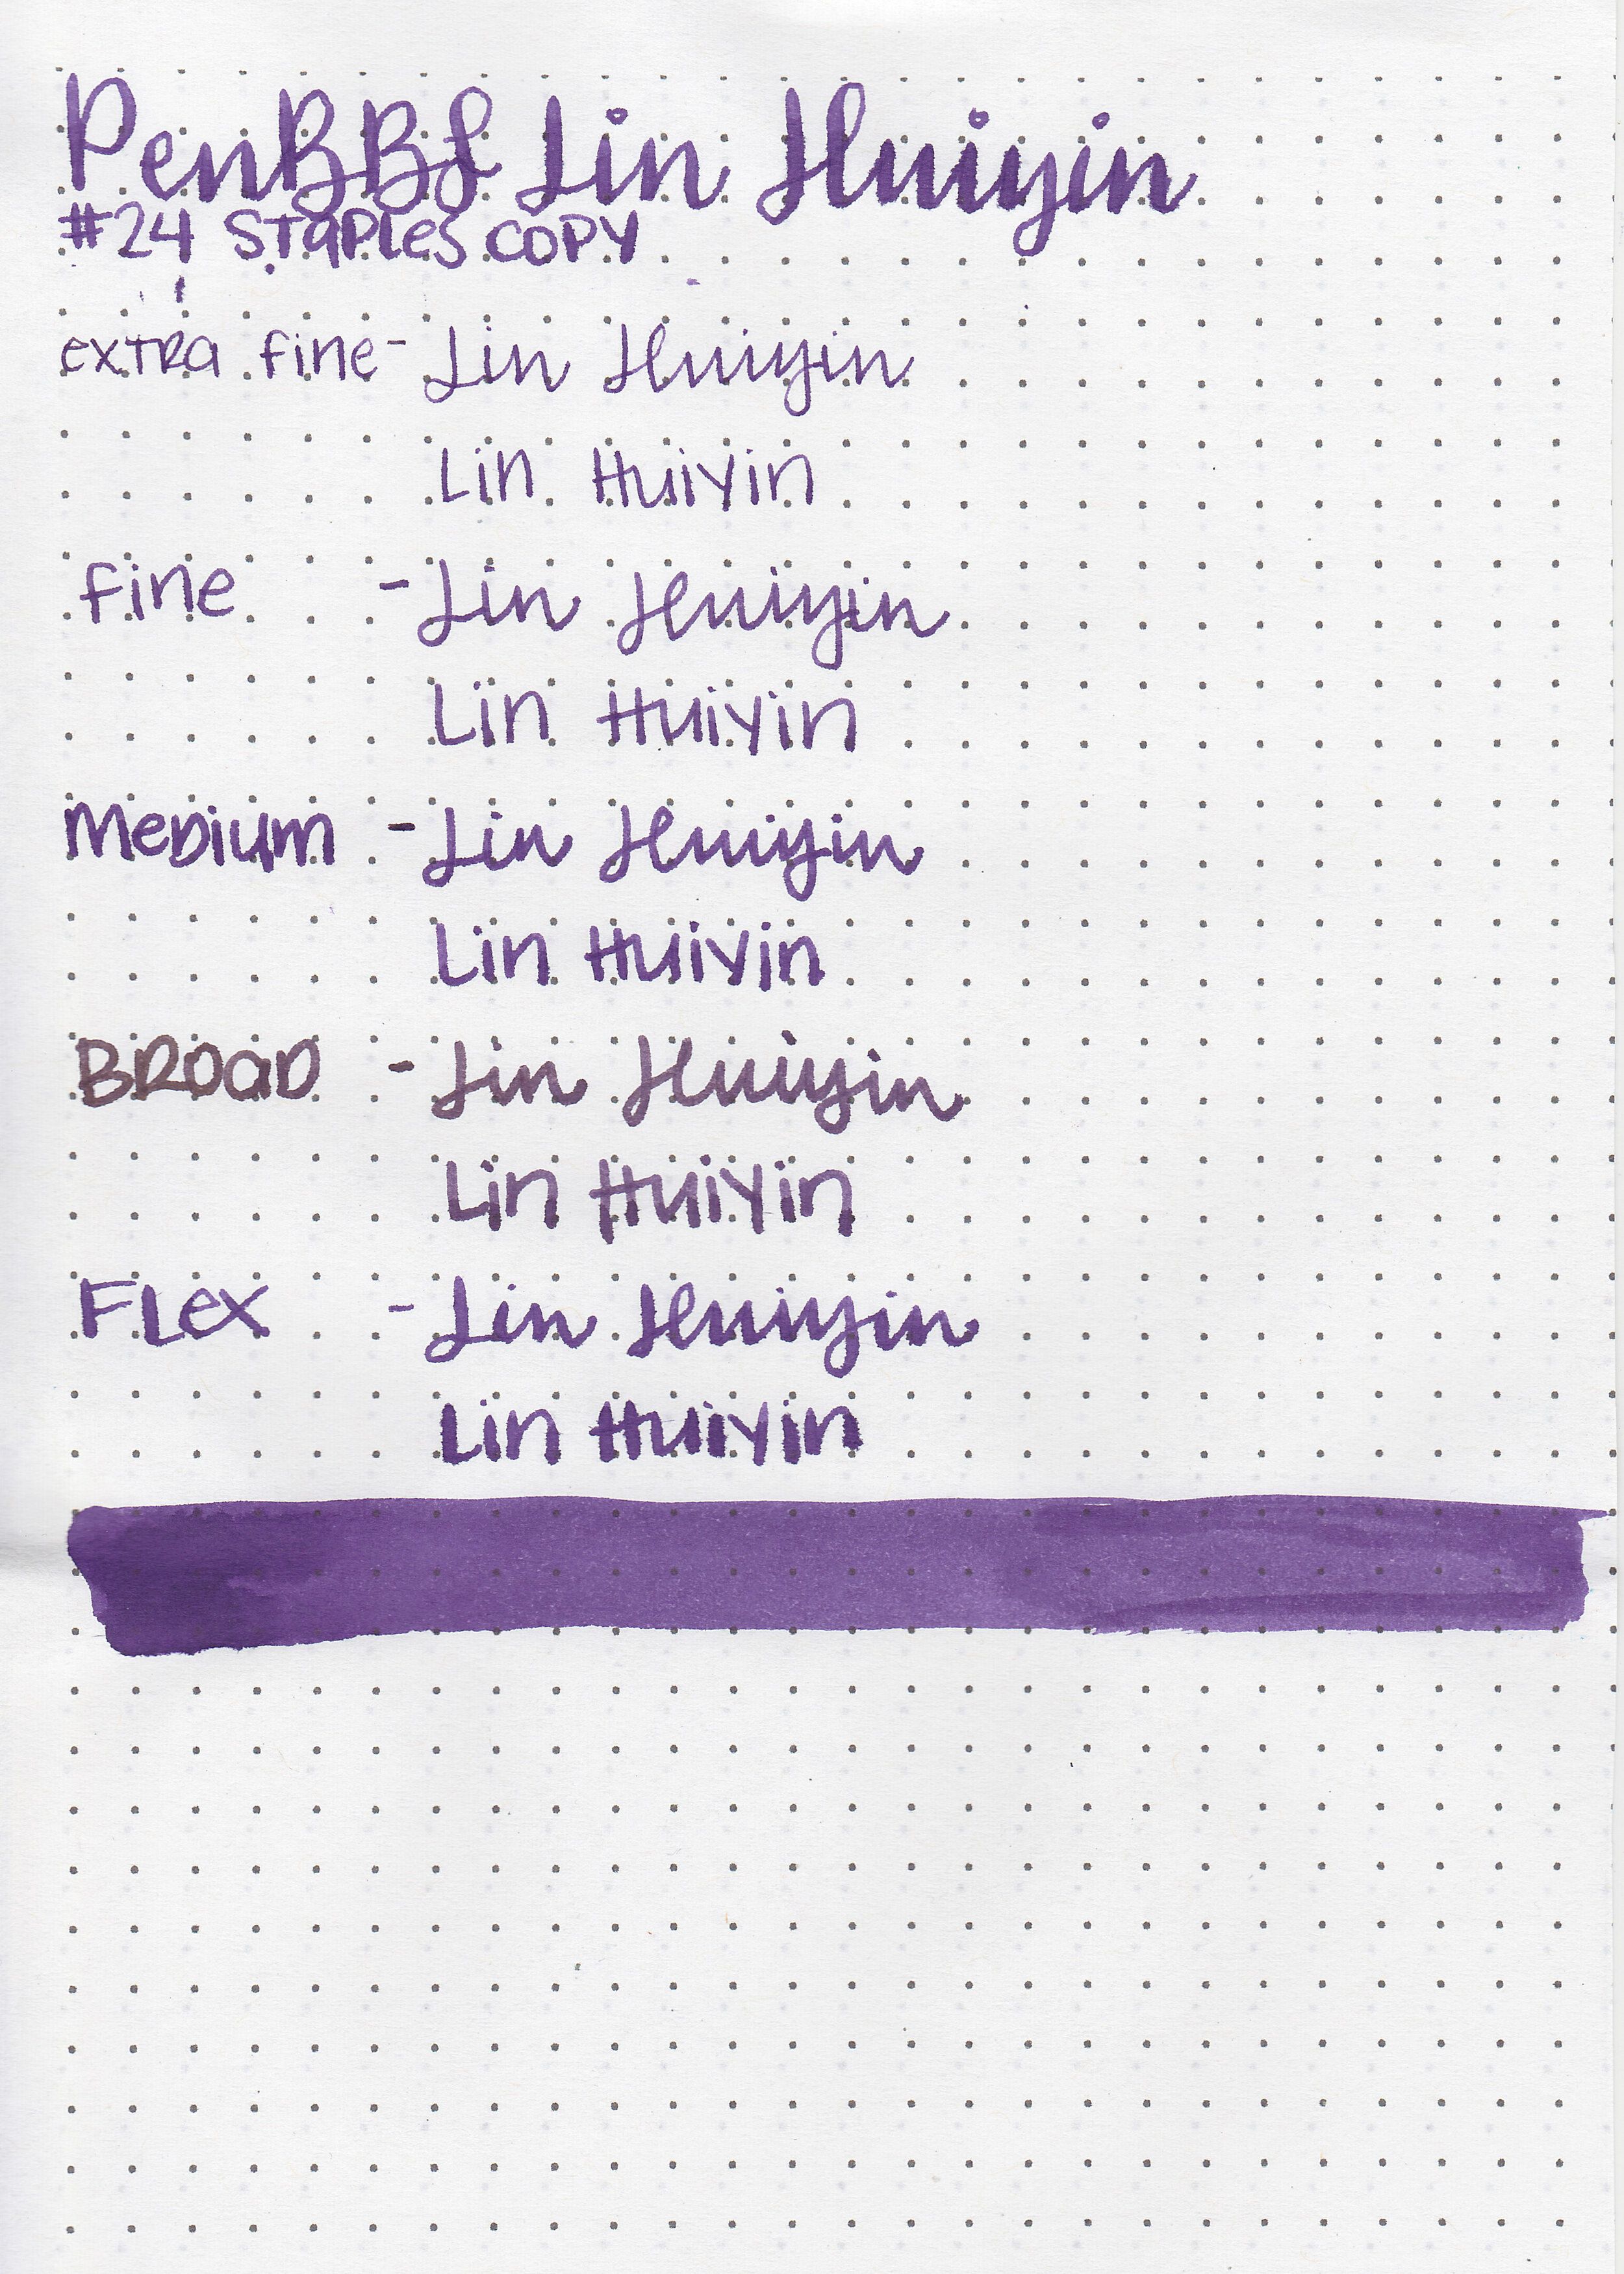 PenBBS Lin Huiyin
#24 Staples copy
extra fine - Lin Huiyin
Lin Huiyin
fine - Lin Huiyin
Lin Huiyin
Medium - Lin Huiyin
Lin Huiyin
Broad - Lin Huiyin
Lin Huiyin
Flex - Lin Huiyin
Lin Huiyin